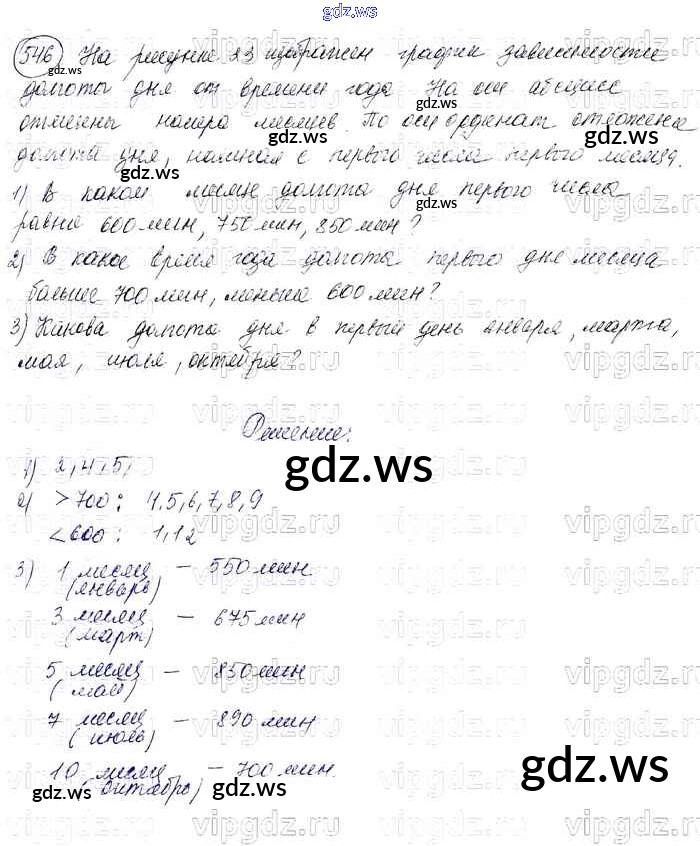 gdz.ws
546 На рисунке 23 изображен график зависимости
долготы дня от времени года. На оси абсцисс
отмечены номера месяцев. По оси ординат отложены
долготы дня, начиная с первого числа первого месяца.
1) В каком месяце долгота дня первого числа
равна 600 мин, 750 мин, 850 мин?
2) В какое время года долгота первого дня месяца
больше 700 мин, меньше 600 мин?
3) Какова долгота дня в первый день января, марта,
мая, июля, октября?
Решение:
1) 2, 4, 5,
2) >700: 4.5,6,7,8,9
<600: 1,12
3) 1 месяц — 550 мин.
(январь)
3 месяц — 675 мин
(март)
5 месяц — 850 мин
(май)
7 месяц — 890 мин
(июль)
10 месяц — 700 мин.
(октябрь)
gdz.ws
gdz.ws
gdz.ws
gdz.ws
gdz.ws
gdz.ws
gdz.ws
gdz.ws
vipgdz.ru